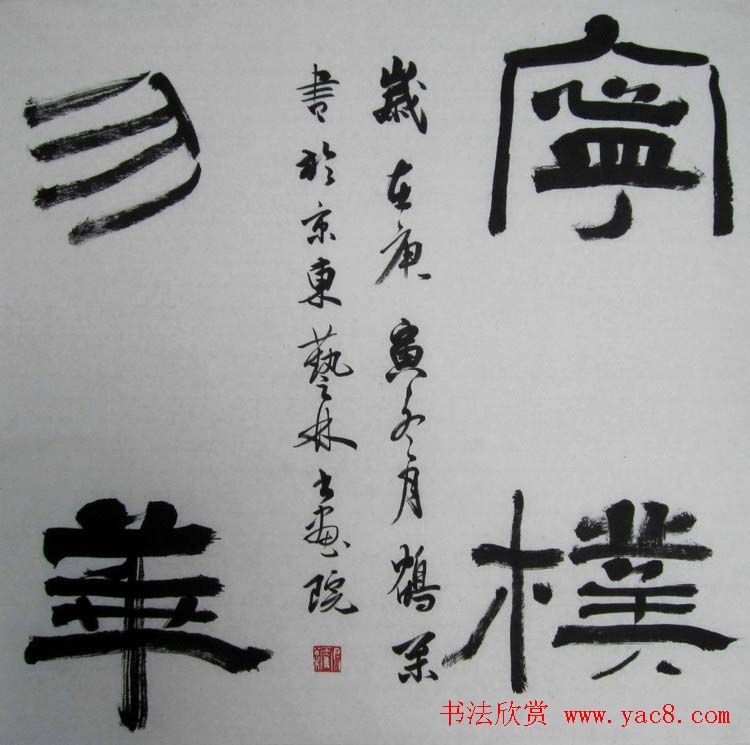 寧樸
歲在庚寅冬月鶴
書於京東藝林書畫院
勿華
书法欣赏 www.yac8.com